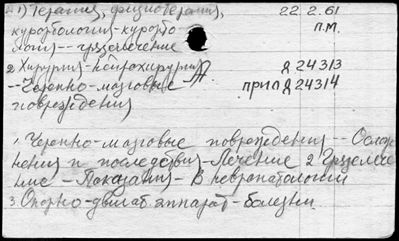 1) Терапия, физиотерапия, 22.2.61
курортология-курорто п.м.
логия--грязелечение
2 Хирургия-нейрохирургия Д 24313
--Черепно-мозговые прил Д 24314
повреждения
1. Черепно-мозговые повреждения--Ослож
нения и последствия-Лечение 2 Грязелече
ние-Показания-В невропатологии
3. Опорно-двигат аппарат-болезни